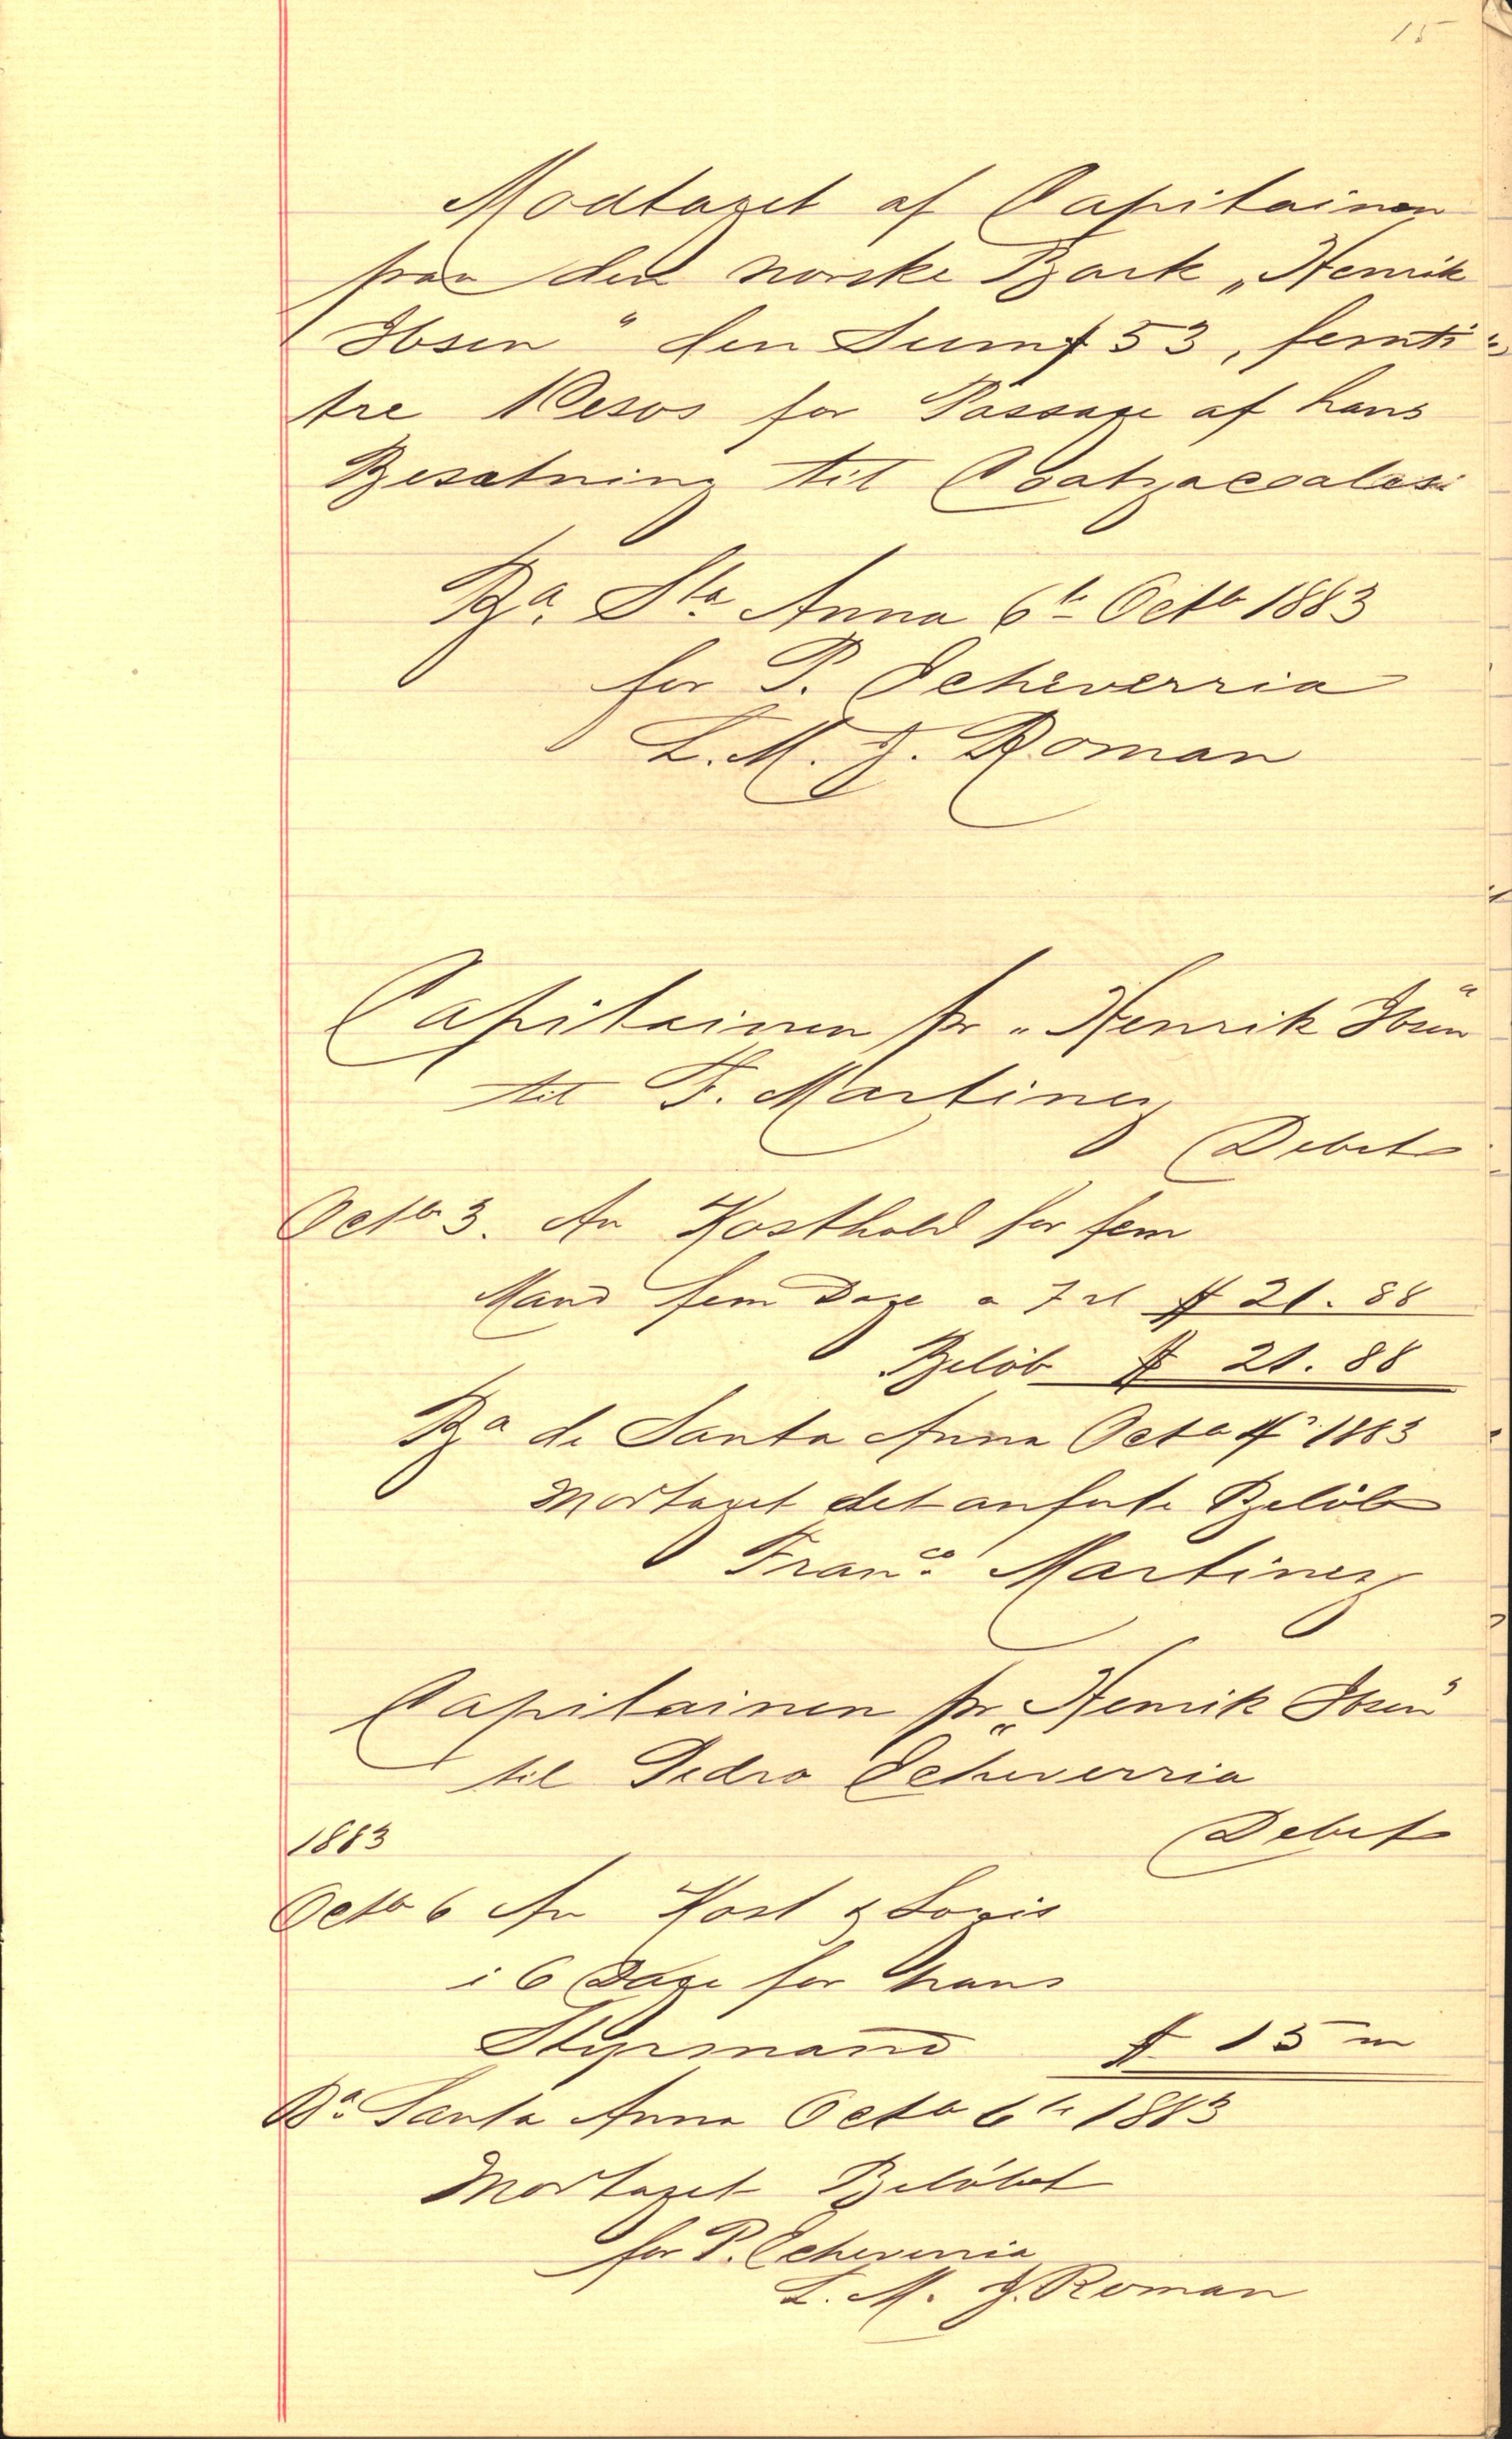 15
Modtaget af Capitainen
fra den norske Bark „Henrik
Ibsen“ den Sum $ 53, femti
tre Pesos for Passage af hans
Besætning til Coatzacoalcos
Ba. Sta. Anna 6te Octb 1883
for P. Echeverria
L. M. J. Roman
Capitainen pr „Henrik Ibsen“
til F. Martinez
Debet
Octb 3. An Kosthold for fem
Mand fem Dage a 7 rl $ 21.88
Belöb $ 21.88
Ba de Santa Anna Octb 4 1883
Modtaget det anførte Belöb
Franco. Martinez
Capitainen pr „Henrik Ibsen“
til Pedro Echeverria
Debet
1883
Octb 6 An Kost & Logis
i 6 Dage for hans
Styrmand $ 15
Ba. Santa Anna Octb 6te 1883
Modtaget Belöbet
for P. Echeverria
L. M. J. Roman